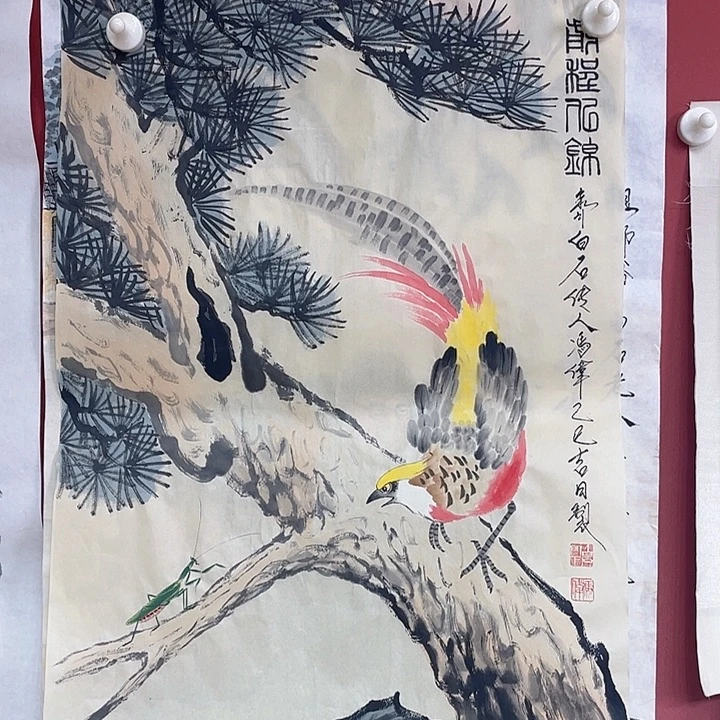 前程似錦
齐白石传人馮偉乙巳吉日製